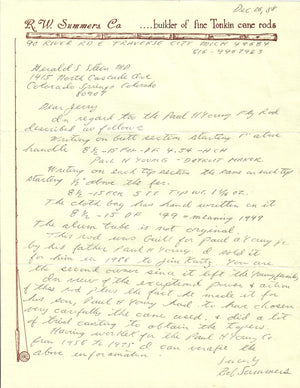 Dec 26, 88
R.W. Summers Co ....builder of fine Tonkin cane rods
90 RIVER RD E TRAVERSE CITY MICH 49684
616-9467923
Herald S Stein MD
1415 North Cascade Ave
Colorado Springs Colorado
80907
Dear Jerry
In regard to the Paul H Young Fly Rod
described as follows
Writing on butt section starting 1" above
handle 8½-15 PER- DF 4.54 -
PAUL H YOUNG - DETROIT MAKER
Writing on each tip section the same on each tip
starting ½" above the fer.
8½ -15 PER 5 F TIP WT 1⅛ oz.
The cloth bag has hand written on it
8½ -15 DF '49 = meaning 1949
The alum tube is not original.
This rod was built for Paul A Young Jr
by his father Paul H Young. I sold it
for him in 1988 to Jim You are
the second owner since it left the Young family
In view of the exceptional power & action
of this rod plus the fact he made it for
his son, Paul H Young had to have chosen
very carefully the cane used, & did a lot
of trial casting to obtain the tapers.
Having worked for the Paul H Young Co.
from 1956 to 1975 I can verify the
above information.
Sincerely
Bob Summers